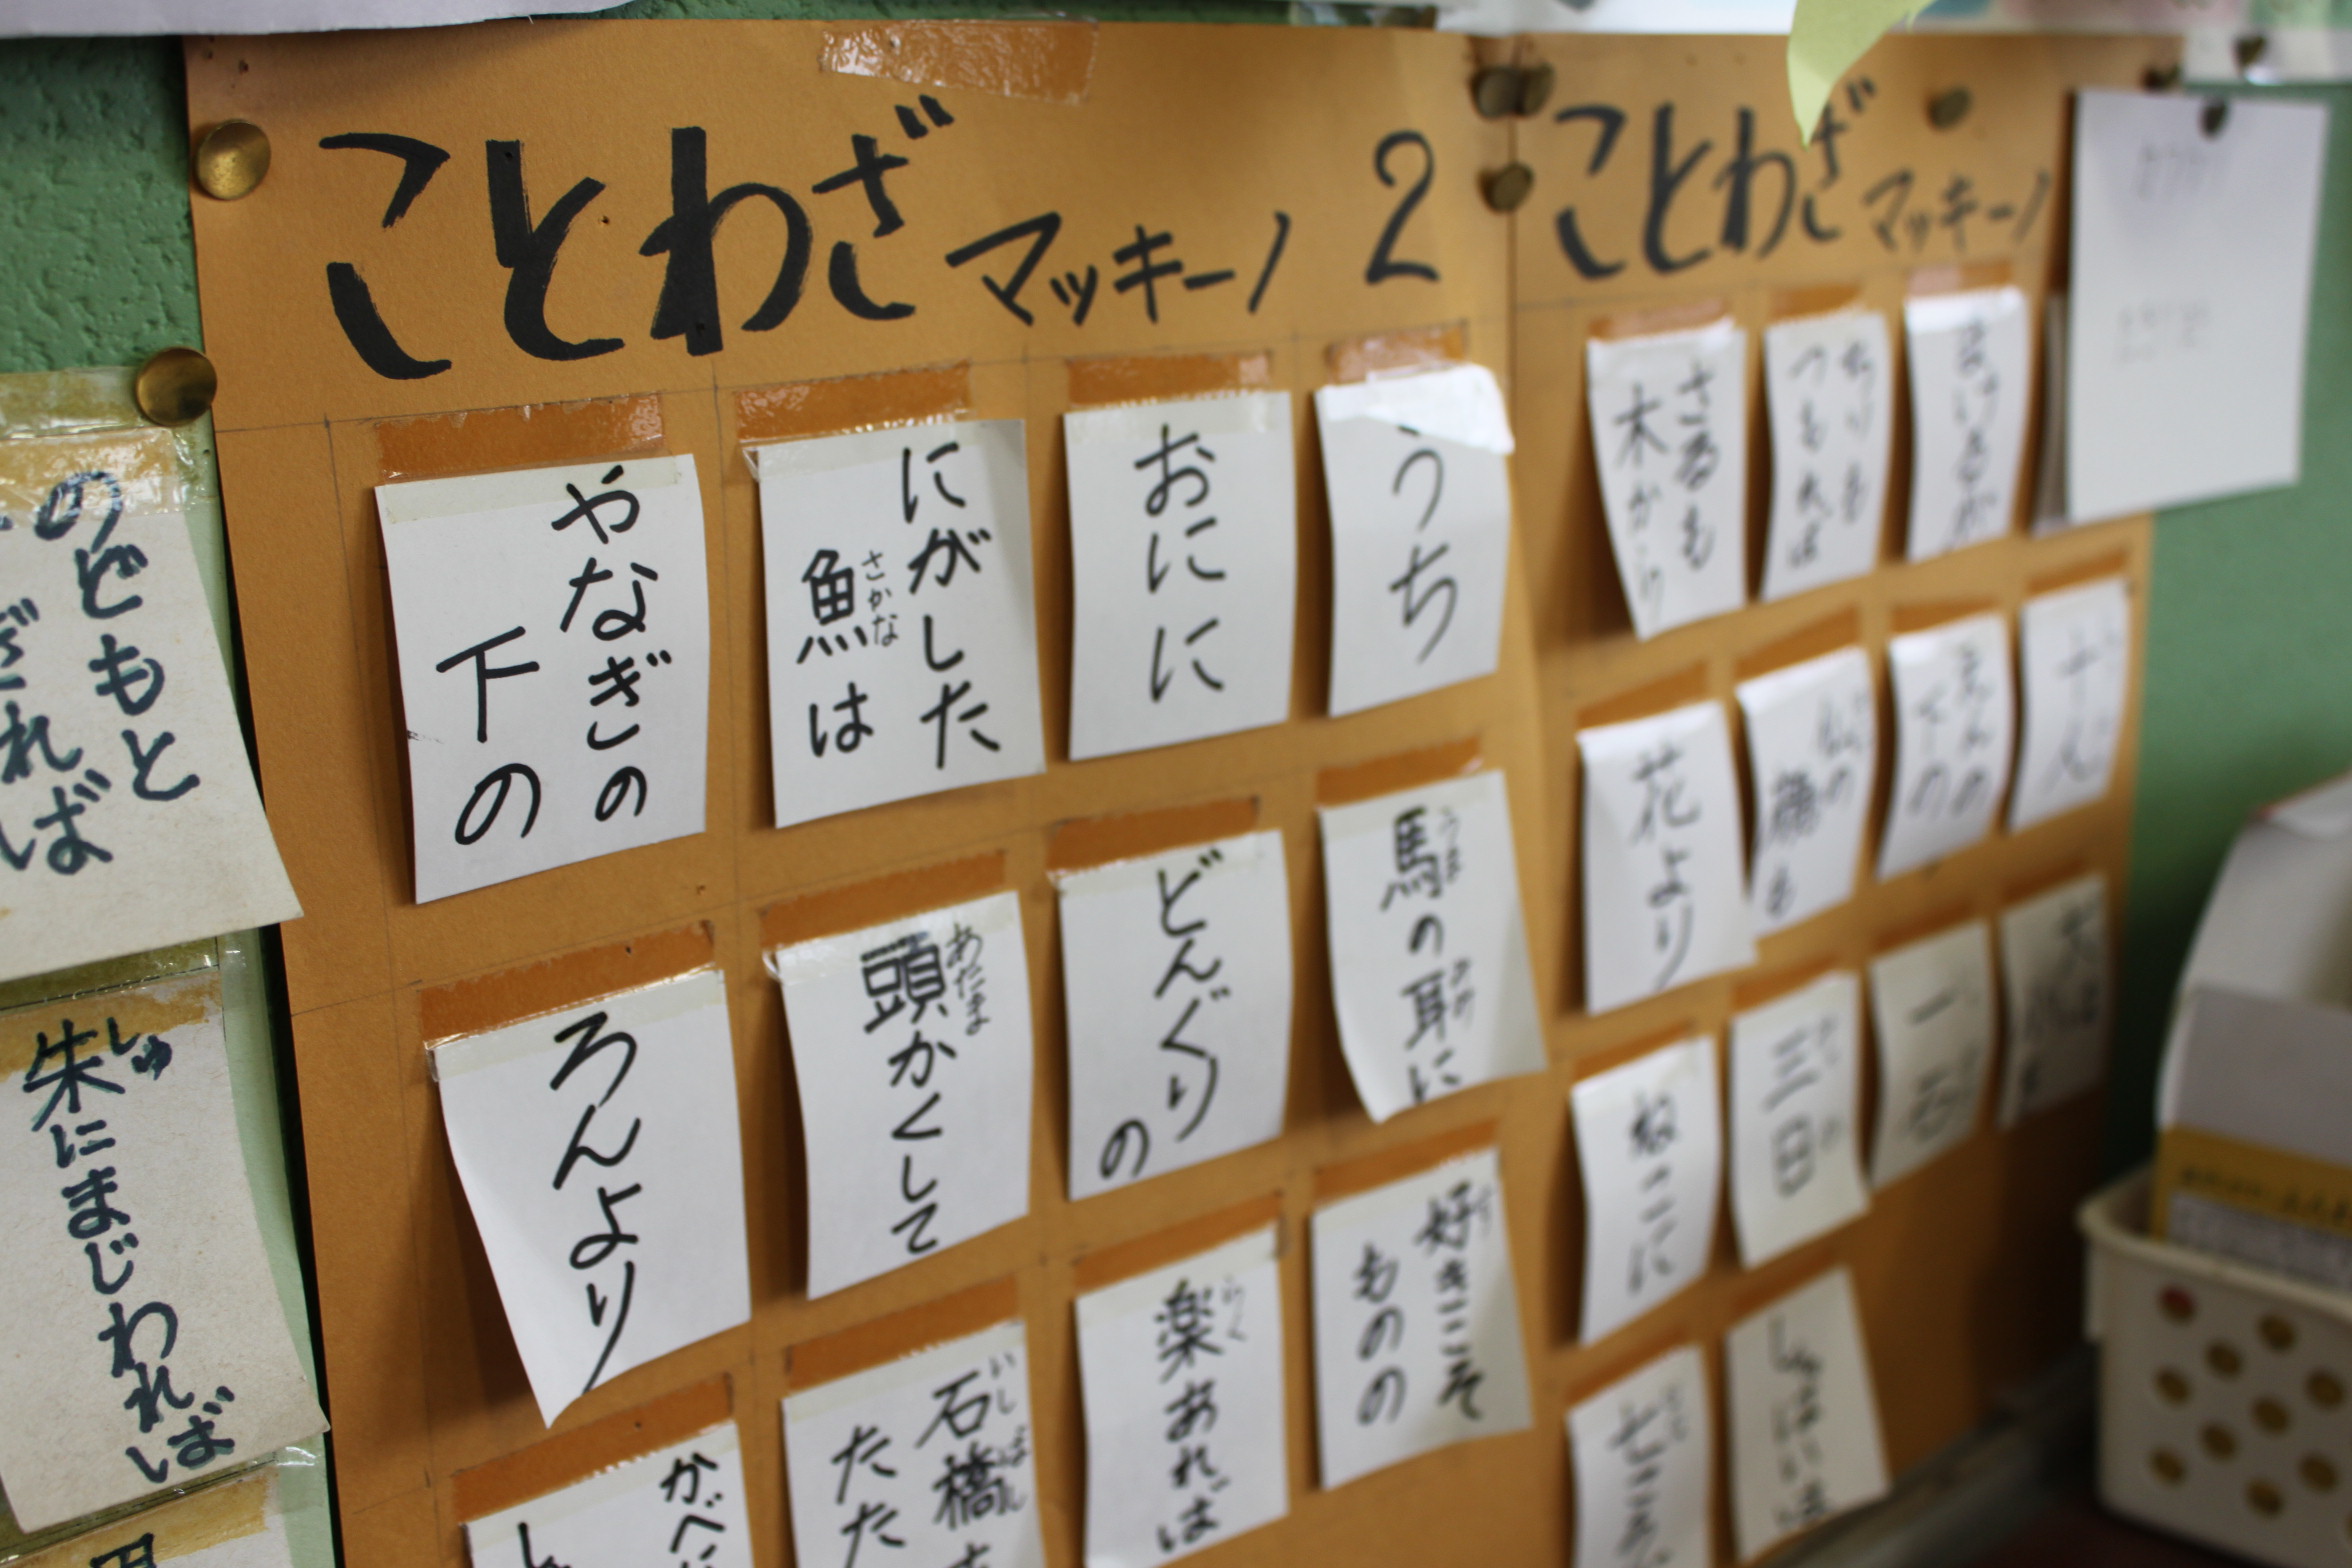 ことわざ マッキーノ 2
やなぎの
下の
にがした
魚は
さかな
おにに
うち
ろんより
頭かくして
あたま
どんぐり
の
馬の耳に
うま
みみ
石橋
いしばし
たた
楽あれば
らく
好きこそ
ものの
す
ことわざ マッキーノ
さるも
木から
ちりも
つもれば
まけるが
花より
ねこに
三日
一石
十人
のどもと
ぎれば
朱にまじわれば
しゅ